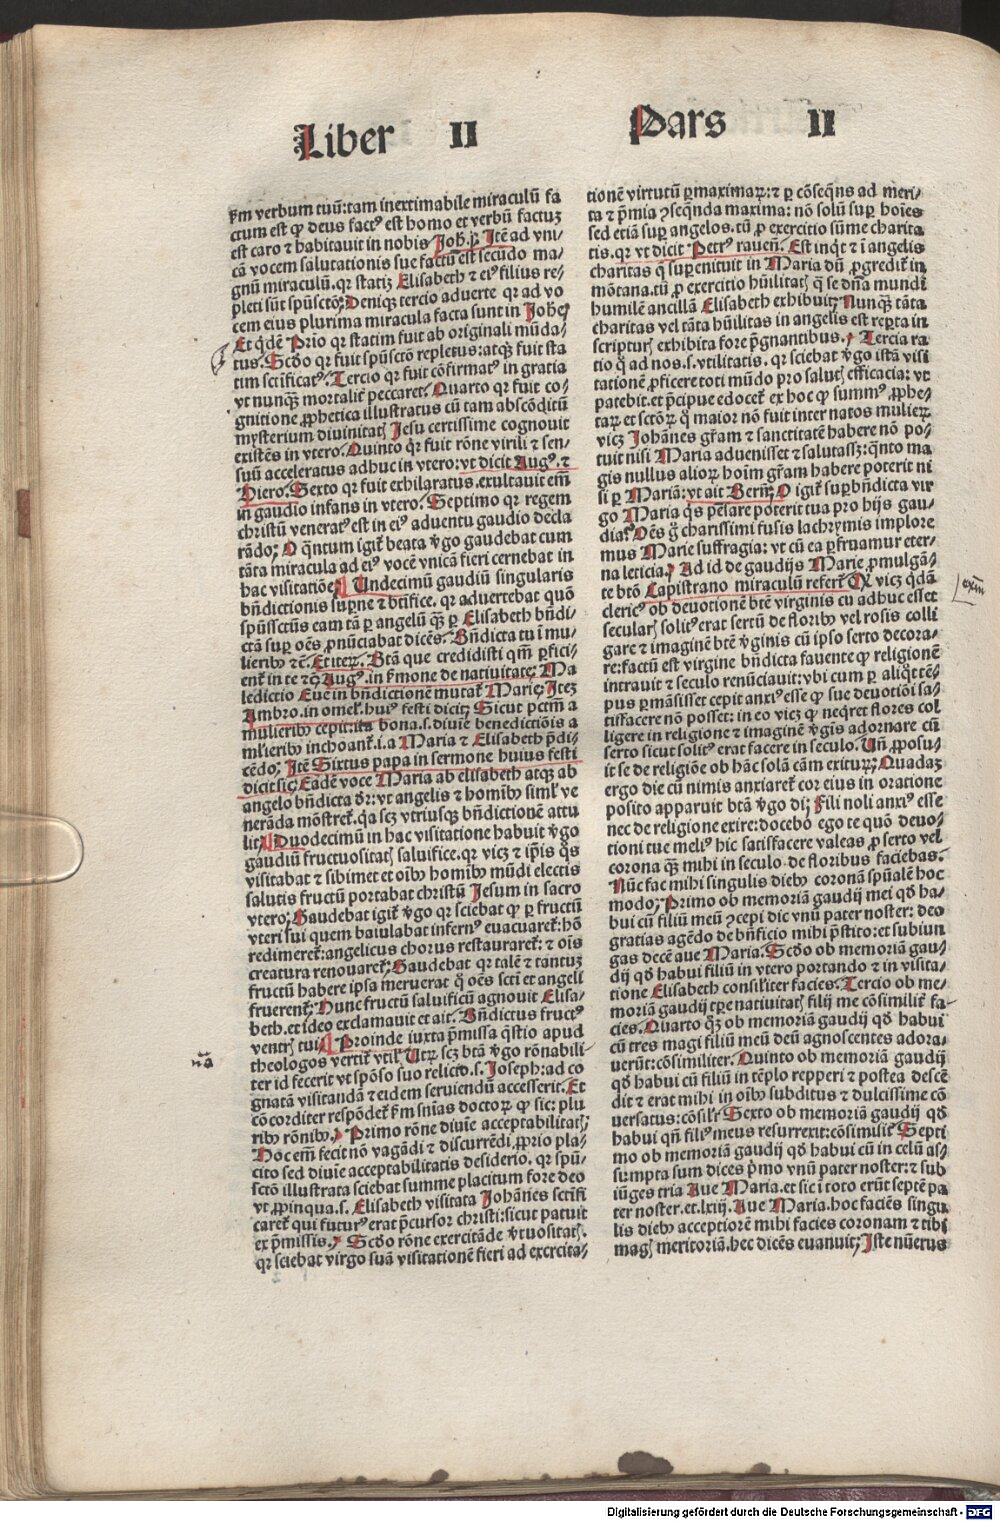 Liber II
Pars II
ẜm verbum tuū: tam inextimabile miraculū fa
ctum est ꝙ deus factꝰ est homo et verbū factuȝ
est caro ⁊ habitauit in nobis Joh̄. p̄. Itē ad vni-
cā vocem salutationis sue factuȝ est secūdo ma-
gnū miraculū. qꝛ statiȝ Elisabeth ⁊ eiꝰ filius re-
pleti sūt spūsctō; Deniqȝ tercio aduerte qꝛ ad vo
cem eius plurima miracula facta sunt in Johe
Et qͥdē Prio qꝛ statim fuit ab originali mūda-
tus. Scd̄o qꝛ fuit spūsctō repletus: atqȝ fuit sta
tim sctīficatꝰ. Tercio qꝛ fuit cōfirmatꝰ in gratia
vt nunqȝ mortaliṫ peccaret. Quarto qꝛ fuit co-
gnitione ꝓphetica illustratus cū tam abscōditū
mysterium diuinitatꝭ Jesu certissime cognouit
existēs in vtero. Quinto qꝛ fuit rōne virili ⁊ sen-
suū acceleratus adhuc in vtero: vt dicit Augꝰ. ⁊
Hiero. Sexto qꝛ fuit exhilaratus. exultauit em̄
in gaudio infans in vtero. Septimo qꝛ regem
christū veneratꝰ est in eiꝰ aduentu gaudio decla
rādo; O qͣntum igiṫ beata v̄go gaudebat cum
tāta miracula ad eiꝰ vocē vnicā fieri cernebat in
hac visitatiōe. Undecimū gaudiū singularis
bn̄dictionis suꝑne ⁊ btīfice. qꝛ aduertebat quō
spūssctūs eam tā ꝑ angelū qȝ ꝑ Elisabeth bn̄di-
ctā suꝑ oēs ꝓnūciabat dicēs. Bn̄dicta tu ī mu-
lieribꝰ ⁊c̄. Et iteꝝ. Btā que credidisti qm̄ ꝑfici-
enṫ in te ⁊c̄. Augꝰ. in ẜmone de natiuitate; Ma
ledictio Eue in bn̄dictionē mutaṫ Marie; Iteȝ
Ambro. in omel. huiꝰ festi dicit; Sicut pctm̄ a
mulieribꝰ cepit: ita bona. s. diuie benedictiōis a
mlieribꝰ inchoanṫ. i. a Maria ⁊ Elisabeth p̄di-
cēdo; Itē Sixtus papa in sermone huius festi
dicit sic; Eādē voce Maria ab elisabeth atqȝ ab
angelo bn̄dicta dr̄: vt angelis ⁊ homībꝰ siml̄ ve
nerāda mōstreṫ. qa seȝ vtriusqȝ bn̄dictionē attu
lit; Duodecimū in hac visitatione habuit v̄go
gaudiū fructuositatꝭ saluifice. qꝛ vicȝ ⁊ ip̄is qͦs
visitabat ⁊ sibimet et oībꝰ homībꝰ mūdi electis
salutis fructū portabat christū Jesum in sacro
vtero; Gaudebat igiṫ v̄go qꝛ sciebat ꝙ ꝑ fructū
vteri sui quem baiulabat infernꝰ euacuareṫ: hō
redimereṫ: angelicus chorus restaurareṫ: ⁊ oīs
creatura renouareṫ; Gaudebat qꝛ talē ⁊ tantuȝ
fructū habere ipsa meruerat qͦ oēs scti et angeli
fruerenṫ; Hunc fructū saluificū agnouit Elisa-
beth. et ideo exclamauit et ait. Bn̄dictus fructꝰ
ventrꝭ tui. Proinde iuxta p̄missa qͣstio apud
theologos vertiṫ vtilꝭ Utꝝ scȝ btā v̄go rōnabili-
ter id fecerit vt spōso suo relicto. s. Joseph: ad co
gnatā visitandā ⁊ eidem seruiendū accesserit. Et
cōcorditer respōdeṫ ẜm sn̄ias doctoꝝ ꝙ sic: plu
ribꝰ rōnibꝰ. Primo rōne diuie acceptabilitatꝭ.
Hoc em̄ fecit nō vagādi ⁊ discurrēdi ꝓprio pla-
cito sed diuie acceptabilitatis desiderio. qꝛ spū-
sctō illustrata sciebat summe placitum fore deo
vt ꝓpinqua. s. Elisabeth visitata Johānes sctīfi
careṫ qui futurꝰ erat p̄cursor christi: sicut patuit
ex p̄missis. Scd̄o rōne exercitāde v̄tuositatꝭ.
qꝛ sciebat virgo suā visitationē fieri ad exercita-
tionē virtutū ꝑmaximaꝝ: ⁊ ꝑ cōseqn̄s ad meri-
ta ⁊ p̄mia ꝯseqn̄da maxima: nō solū suꝑ hoīes
sed etiā suꝑ angelos. tū ꝓ exercitio sūme charita
tis. qꝛ vt dicit Petrꝰ rauen̄. Est inqͥt ⁊ ī angelis
charitas q̄ suꝑuenituit in Maria dū ꝓgrediṫ in
mōtana. tū ꝓ exercitio hūilitatꝭ q̄ se dn̄a mundi
humilē ancillā Elisabeth exhibuit; Nunqȝ tāta
charitas vel tāta hūilitas in angelis est reꝑta in
scripturꝭ exhibita fore p̄gnantibus. Tercia ra
tio qͥ ad nos. s. vtilitatis. qꝛ sciebat v̄go istā visi
tationē ꝓficere toti mūdo pro salutꝭ efficacia: vt
patebit. et p̄cipue edoceṫ ex hoc ꝙ summꝰ ꝓphe-
taꝝ et sctōꝝ qͦ maior nō fuit inter natos mulieꝝ
vicȝ Johānes gr̄am ⁊ sanctitatē habere nō po-
tuit nisi Maria aduenisset ⁊ salutasset: qͣnto ma
gis nullus alioꝝ hoīm gr̄am habere poterit ni
si ꝑ Mariā: vt ait Bern̄. O igiṫ suꝑbn̄dicta vir
go Maria qͥs pēsare poterit tua pro hijs gau-
dia? Oēs g̊ charissimi fusis lachrymis implore
mus Marie suffragia: vt cū ea ꝑfruamur eter-
na leticia. Ad id de gaudijs Marie ꝓmulgā-
te btō Capistrano miraculū referṫ Qꝛ vicȝ qͥdā
clericꝰ ob deuotionē btē virginis cū adhuc esset
secularꝭ solitꝰ erat sertū de floribꝰ vel rosis colli
gare ⁊ imaginē btē v̄ginis cū ipso serto decora-
re: factū est virgine bn̄dicta fauente ꝙ religionē
intrauit ⁊ seculo renūciauit: vbi cum ꝑ aliqͦt tē-
pus ꝑmāsisset cepit anxiꝰ esse ꝙ sue deuotiōi sa-
tiffacere nō posset: in eo vicȝ ꝙ neqͥret flores col
ligere in religione ⁊ imaginē v̄gis adornare cū
serto sicut solitꝰ erat facere in seculo. Un̄ ꝓposu-
it se de religiōe ob hāc solā cām exituꝝ; Quadaȝ
ergo die cū nimis anxiareṫ cor eius in oratione
posito apparuit btā v̄go di; Fili noli anxiꝰ esse
nec de religione exire: docebo ego te quō deuo-
tioni tue meliꝰ hic satisfacere valeas ꝓ serto vel
corona qȝ mihi in seculo de floribus faciebas.
Nūc fac mihi singulis diebꝰ coronā spūalē hoc
modo; Primo ob memoriā gaudij mei qd̄ ha-
bui cū filiū meū ꝯcepi dic vnū pater noster: deo
gratias agēdo de bn̄ficio mihi p̄stito: et subiun
gas decē aue Maria. Scd̄o ob memoriā gau-
dij qd̄ habui filiū in vtero portando ⁊ in visita-
tione Elisabeth consil̄iter facies. Tercio ob me-
moriā gaudij tꝑe natiuitatꝭ filij me cōsimiliṫ fa-
cies. Quarto qͦȝ ob memoriā gaudij qd̄ habui
cū tres magi filiū meū deū agnoscentes adora-
uerūt: cōsimiliter. Quinto ob memoriā gaudij
qd̄ habui cū filiū in tēplo repperi ⁊ postea descē
dit ⁊ erat mihi in oībꝰ subditus ⁊ dulcissime cō
uersatus: cōsil̄r. Sexto ob memoriā gaudij qd̄
habui qn̄ filiꝰ meus resurrexit: cōsimiliṫ Septi
mo ob memoriā gaudij qd̄ habui cū in celū as-
sumpta sum dices p̄mo vnū pater noster: ⁊ sub
iūges tria Aue Maria. et sic ī toto erūt septē pa
ter noster. et. lxiij. Aue Maria. hoc faciēs singu
lis diebꝰ acceptiorē mihi facies coronam ⁊ tibi
magꝭ meritoriā. hec dicēs euanuit; Iste nūerus
exm̄
Digitalisierung gefördert durch die Deutsche Forschungsgemeinschaft - DFG